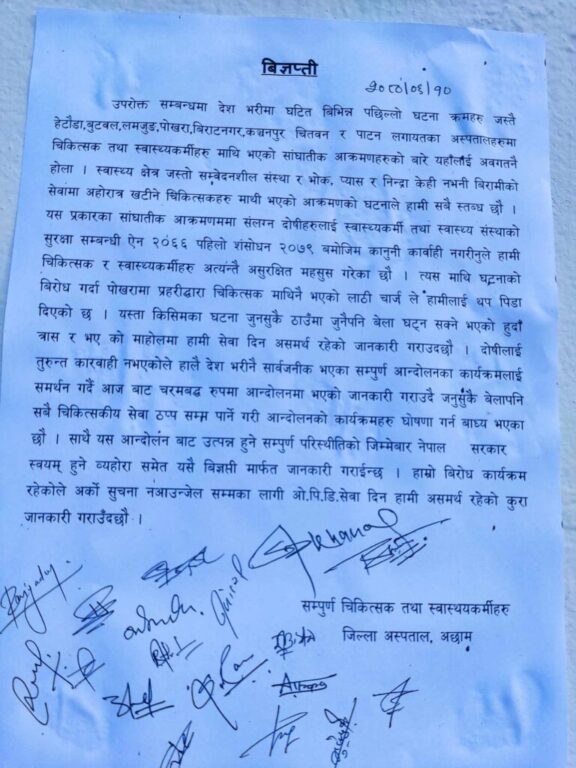 बिज्ञप्ती
२०८०/०६/१०
उपरोक्त सम्बन्धमा देश भरीमा घटित बिभिन्न पछिल्लो घटना क्रमहरु जस्तै
हेटौडा,बुटवल,लमजुङ,पोखरा,बिराटनगर,कञ्चनपुर चितवन र पाटन लगायतका अस्पतालहरुमा
चिकित्सक तथा स्वास्थ्यकर्मीहरु माथि भएको सांघातीक आक्रमणहरुको बारे यहाँलाई अवगतनै
होला । स्वास्थ्य क्षेत्र जस्तो सम्वेदनशील संस्था र भोक, प्यास र निन्द्रा केही नभनी बिरामीको
सेवामा अहोरात्र खटीने चिकित्सकहरु माथी भएको आक्रमणको घटनाले हामी सबै स्तब्ध छौ ।
यस प्रकारका सांघातीक आक्रमणममा संलग्न दोषीहरुलाई स्वास्थ्यकर्मी तथा स्वास्थ्य संस्थाको
सुरक्षा सम्बन्धी ऐन २०६६ पहिलो शंसोधन २०७९ बमोजिम कानुनी कार्वाही नगरीनुले हामी
चिकित्सक र स्वास्थ्यकर्मीहरु अत्यन्तै असुरक्षित महसुस गरेका छौ । त्यस माथि घटनाको
बिरोध गर्दा पोखरामा प्रहरीद्वारा चिकित्सक माथिनै भएको लाठी चार्ज ले हामीलाई थप पिडा
दिएको छ । यस्ता किसिमका घटना जुनसुकै ठाउँमा जुनैपनि बेला घट्न सक्ने भएको हुदाँ
त्रास र भए को माहोलमा हामी सेवा दिन असमर्थ रहेको जानकारी गराउदछौ । दोषीलाई
तुरुन्त कारबाही नभएकोले हालै देश भरीनै सार्वजनीक भएका सम्पुर्ण आन्दोलनका कार्यक्रमलाई
समर्थन गर्दै आज बाट चरमबद्ध रुपमा आन्दोलनमा भएको जानकारी गराउदै जनुसुकै बेलापनि
सबै चिकित्सकीय सेवा ठप्प सम्म पार्ने गरी आन्दोलनको कार्यक्रमहरु घोषणा गर्न बाध्य भएका
छौ । साथै यस आन्दोलन बाट उत्पन्न हुने सम्पुर्ण परिस्थीतिको जिम्मेबार नेपाल सरकार
स्वयम् हुने व्यहोरा समेत यसै बिज्ञप्ती मार्फत जानकारी गराईन्छ । हाम्रो बिरोध कार्यक्रम
रहेकोले अर्को सुचना नआउन्जेल सम्मका लागी ओ.पि.डि.सेवा दिन हामी असमर्थ रहेको कुरा
जानकारी गराउँदछौ ।
सम्पुर्ण चिकित्सक तथा स्वास्थयकर्मीहरु
जिल्ला अस्पताल, अछाम